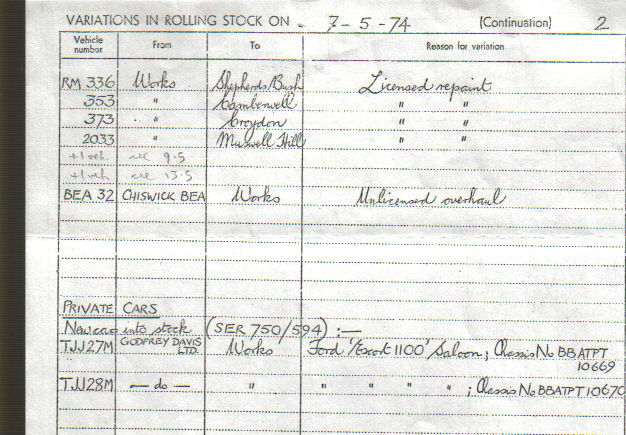 VARIATIONS IN ROLLING STOCK ON - 7-5-74 (Continuation) 2
Vehicle number From To Reason for variation
RM 336 Works Shepherds/Bush Licensed repaint
353 " Camberwell " "
373 " Croydon " "
2033 " Muswell Hill " "
+1 veh. see 9.5
+1 veh. see 13.5
BEA 32 CHISWICK BEA Works Unlicensed overhaul
PRIVATE CARS
New cars into stock (SER 750/594) :—
TJJ27M GODFREY DAVIS LTD. Works Ford 'Escort 1100' Saloon; Chassis No BBATPT 10669
TJJ28M — do — " " " " " ; Chassis No BBATPT 10670